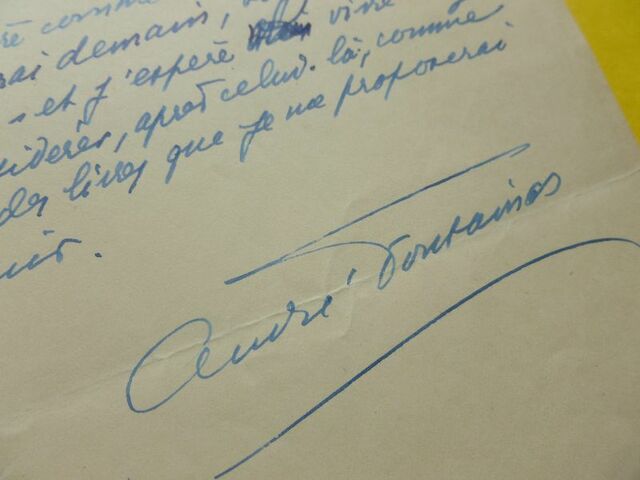 comme
ai demain,
et j'espère vivre
sidérés, après celui-là, comme
des livres que je me proposerai
André Fontainas